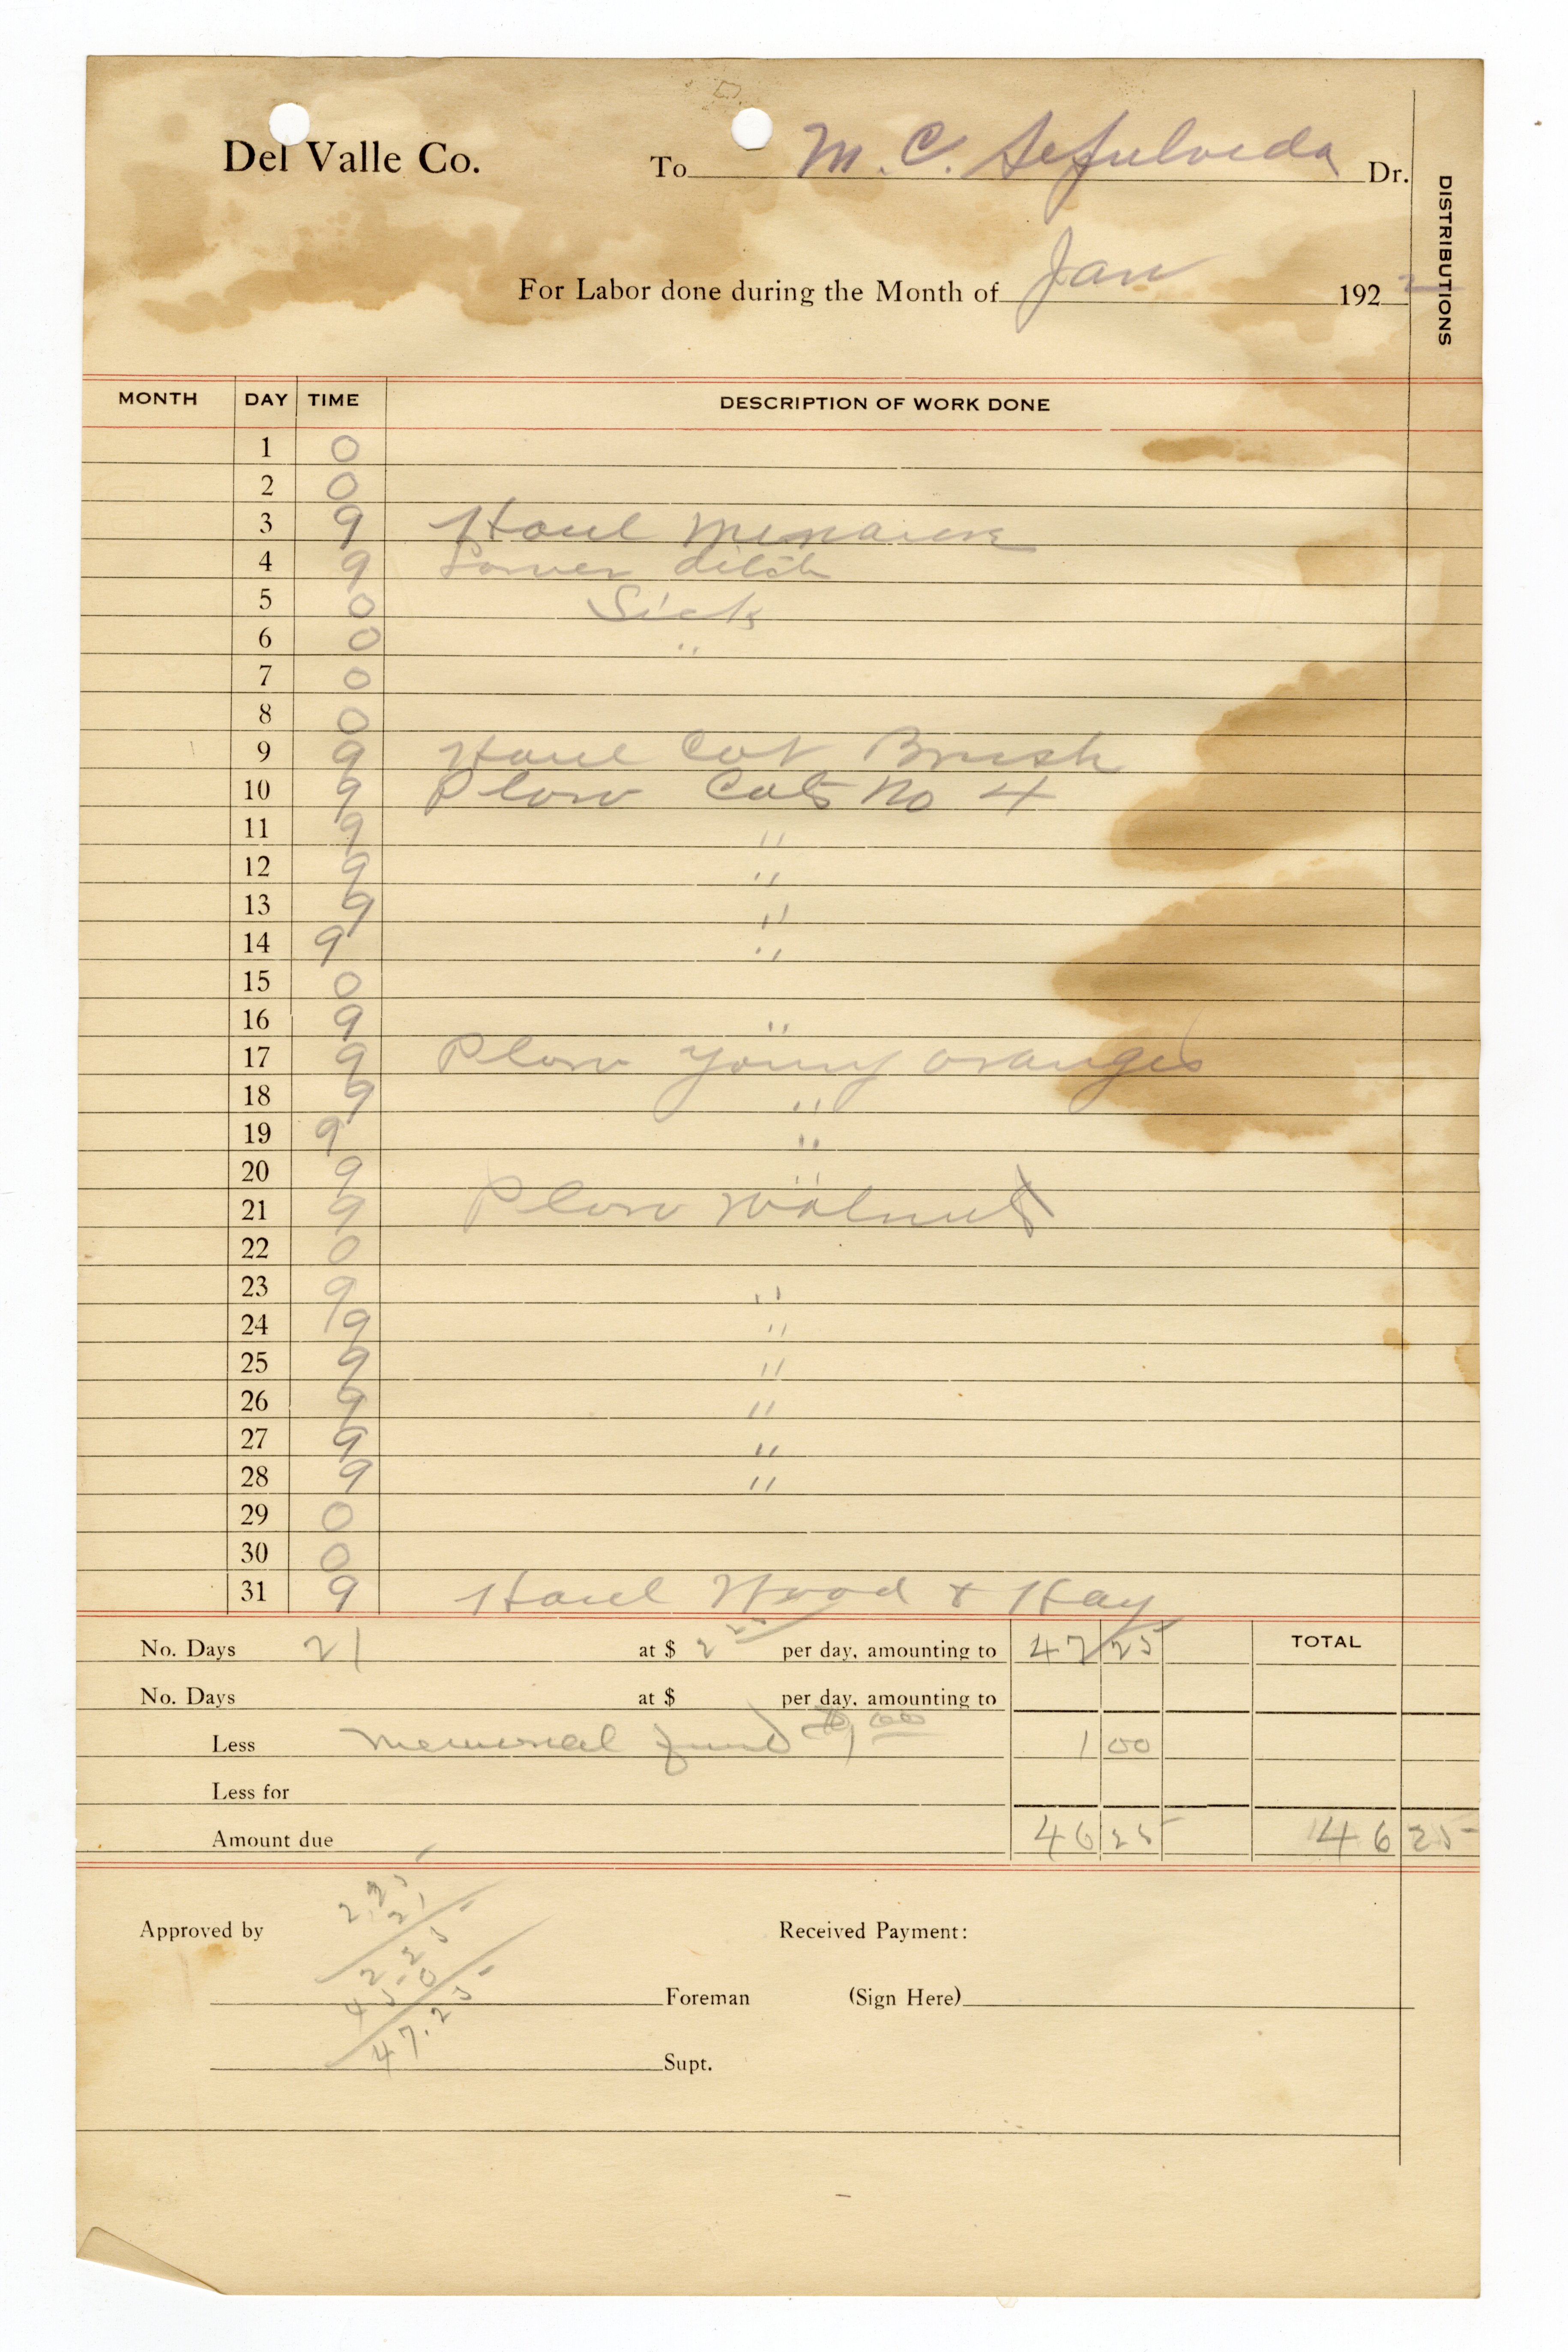 Del Valle Co. To M. C. Sepulveda Dr.
DISTRIBUTIONS
For Labor done during the Month of Jan 1922
MONTH DAY TIME DESCRIPTION OF WORK DONE
1 0
2 0
3 9 Haul
4 9 ditch
5 0 Sick
6 0 "
7 0
8 0
9 9 Haul Cot Brush
10 9 Plow Cots No 4
11 9 "
12 9 "
13 9 "
14 9 "
15 0
16 9 "
17 9 Plow young oranges
18 9 "
19 9 "
20 9 "
21 9 Plow Walnuts
22 0
23 9 "
24 9 "
25 9 "
26 9 "
27 9 "
28 9 "
29 0
30 0
31 9 Haul Wood & Hay
No. Days 21 at $ 2 25 per day, amounting to 47 25 TOTAL
No. Days at $ per day, amounting to
Less Memorial fund $1.00 1 00
Less for
Amount due 46 25 46 25
2.25
21
2 25
45 0
47.25
Approved by Received Payment:
Foreman (Sign Here)
Supt.